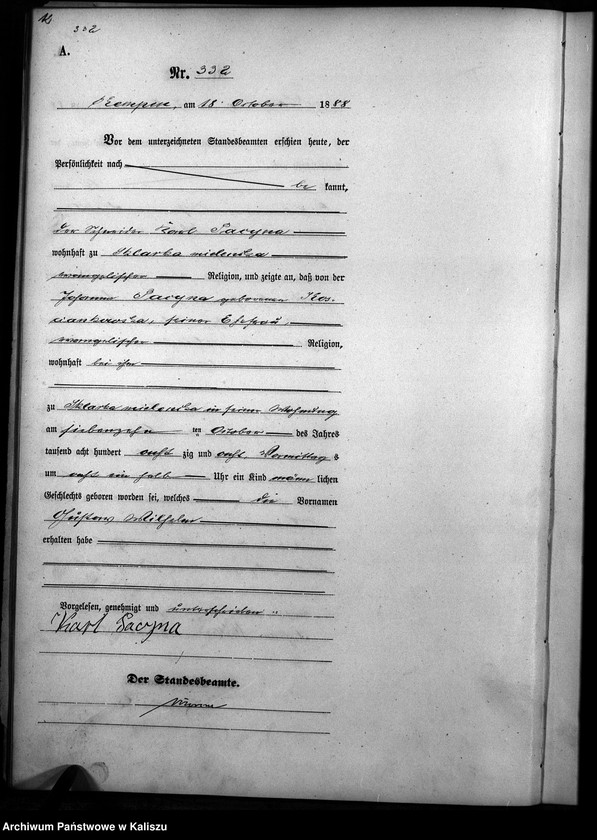 332
A.
Nr. 332
Kempen, am 18 October 1888
Vor dem unterzeichneten Standesbeamten erschien heute, der
Persönlichkeit nach
be kannt,
der Schneider Karl Pacyna
wohnhaft zu Sklarka mielencka
evangelischer Religion, und zeigte an, daß von der
Johanna Pacyna geborenen
seiner Ehefrau
evangelischer Religion,
wohnhaft bei ihm
zu Sklarka mielencka in seiner Wohnung
am siebenzehn ten October des Jahres
tausend acht hundert acht zig und acht Vormittag s
um acht ein halb Uhr ein Kind männ lichen
Geschlechts geboren worden sei, welches die Vornamen
Gustav Wilhelm
erhalten habe
Vorgelesen, genehmigt und unterschrieben
Karl Pacyna
Der Standesbeamte.
Archiwum Państwowe w Kaliszu